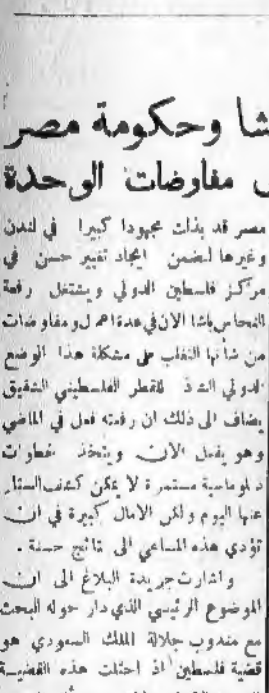 شا وحكومة مصر
مفاوضات الوحدة
مصر قد بذلت مجهودا كبيرا في لندن
وغيرها لتضمن ايجاد تغيير حسن في
مركز فلسطين الدولي ويشتغل رفعة
النحاس باشا الان في عدة اعمال ومفاوضات
من شأنها التغلب على مشكلة هذا الوضع
الدولي الشاذ للقطر الفلسطيني الشقيق
يضاف الى ذلك ان رفعته فعل في الماضي
وهو يفعل الآن ويتخذ خطوات
دبلوماسية مستمرة لا يمكن كشف الستار
عنها اليوم ولكن الآمال كبيرة في ان
تؤدي هذه المساعي الى نتائج حسنة .
واشارت جريدة البلاغ الى ان
الموضوع الرئيسي الذي دار حوله البحث
مع مندوب جلالة الملك السعودي هو
قضية فلسطين اذ احتلت هذه القضية